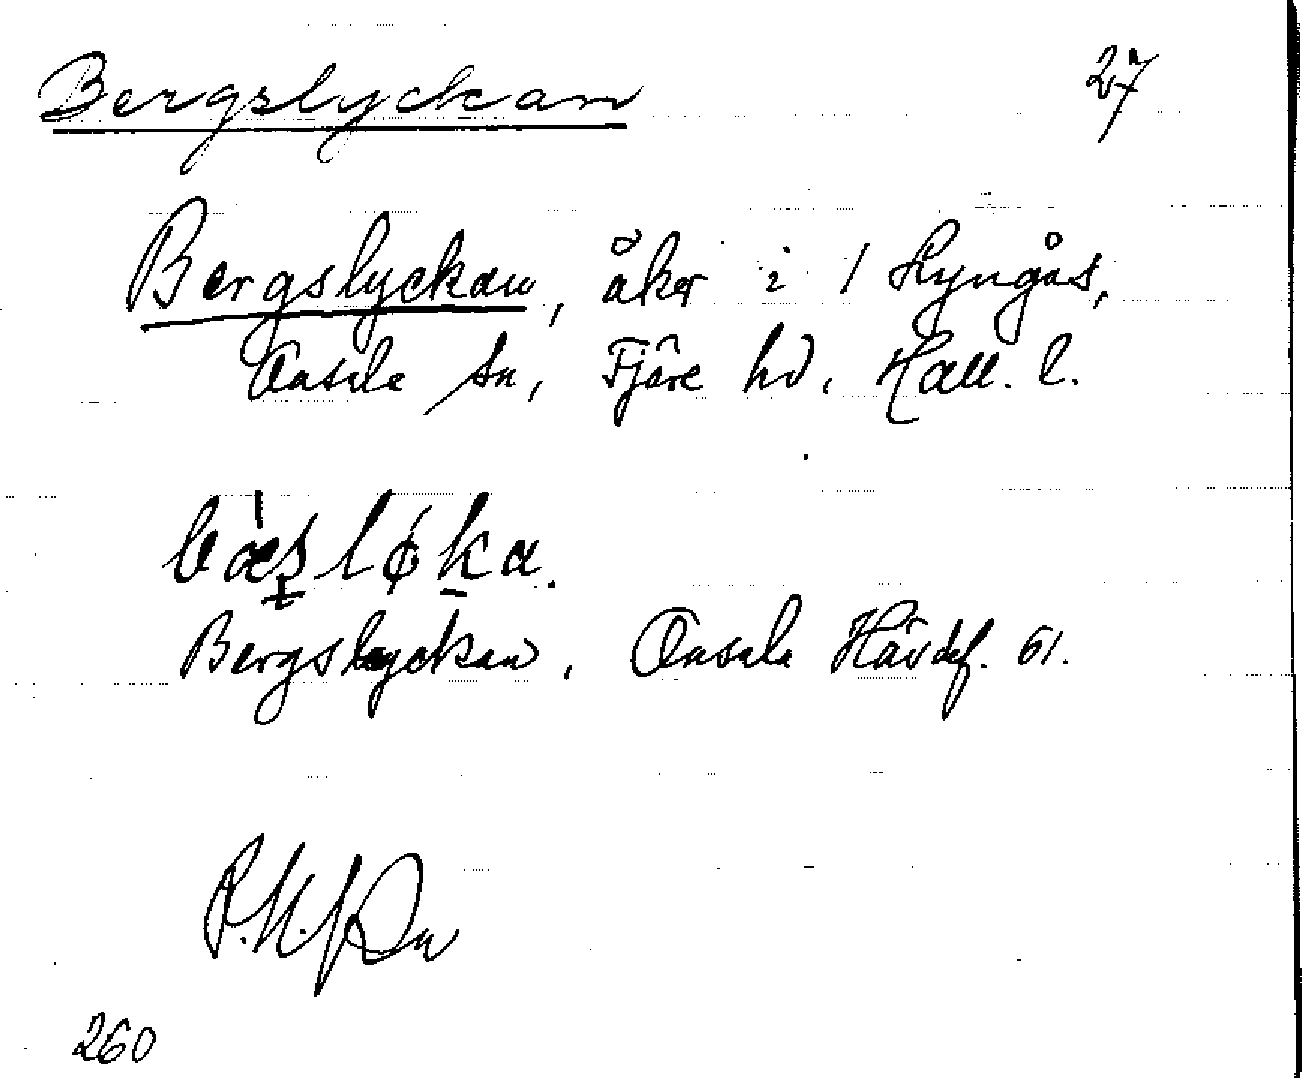 Bergslyckan 27
Bergslyckan, åker i 1 Lyngås,
Onsala sn, Fjäre hd, Hall. l.
bæsløka.
Bergslyckan, Onsala Hävdef. 61.
260